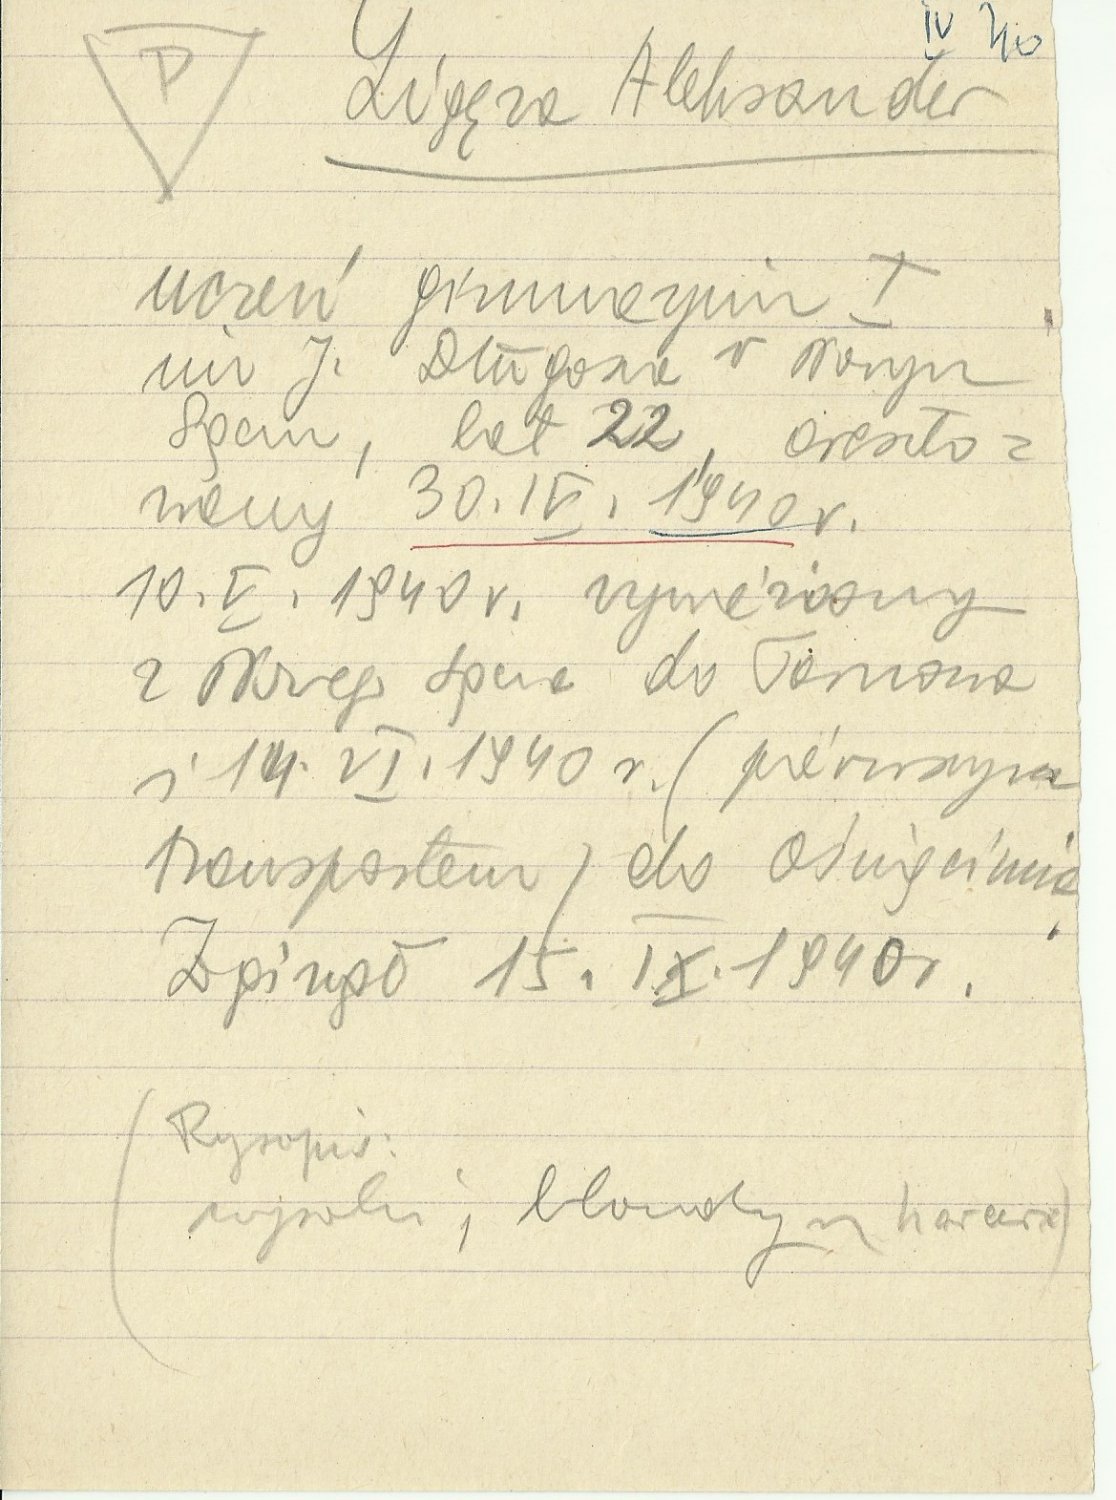 IV 40
P
Ligęza Aleksander
uczeń gimnazjum I
im J. Długosza w Nowym
Sączu, lat 22, areszto=
wany 30.IV.1940r.
10.V.1940r. wywieziony
z Nowego Sącza do Tarnowa
i 14.VI.1940r. (pierwszym
transportem) do Oświęcimia
Zginął 15.IX.1940r.
(Rysopis:
wysoki, blondyn, harcerz)